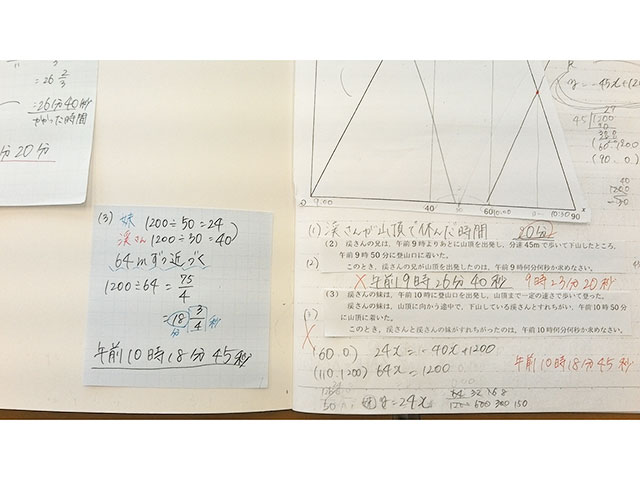 =26 2/3
=26分40秒
かかった時間
分20分
(3) 妹 1200÷50=24
渓さん 1200÷30=40
64mずつ近づく
1200÷64= 75/4
=18 3/4
分 秒
午前10時18分45秒
y=-45x+120
45 1200
(90, 0)
O 9:00 40 60 10:00 10:30 90 x
(1) 渓さんが山頂で休んだ時間 20分
(2) 渓さんの兄は、午前9時よりあとに山頂を出発し、分速45mで歩いて下山したところ、
午前9時50分に登山口に着いた。
このとき、渓さんの兄が山頂を出発したのは、午前9時何分何秒か求めなさい。
(2) ×午前9時26分40秒 9時23分20秒
(3) 渓さんの妹は、午前10時に登山口を出発し、山頂まで一定の速さで歩いて登った。
渓さんの妹は、山頂に向かう途中で、下山している渓さんとすれちがい、午前10時50分
に山頂に着いた。
このとき、渓さんと渓さんの妹がすれちがったのは、午前10時何分何秒か求めなさい。
(60.0) 24x=-40x+1200
(110.1200) 64x=1200
午前10時18分45秒
50 妹 y=24x
64 32 16 8
1200 600 300 150